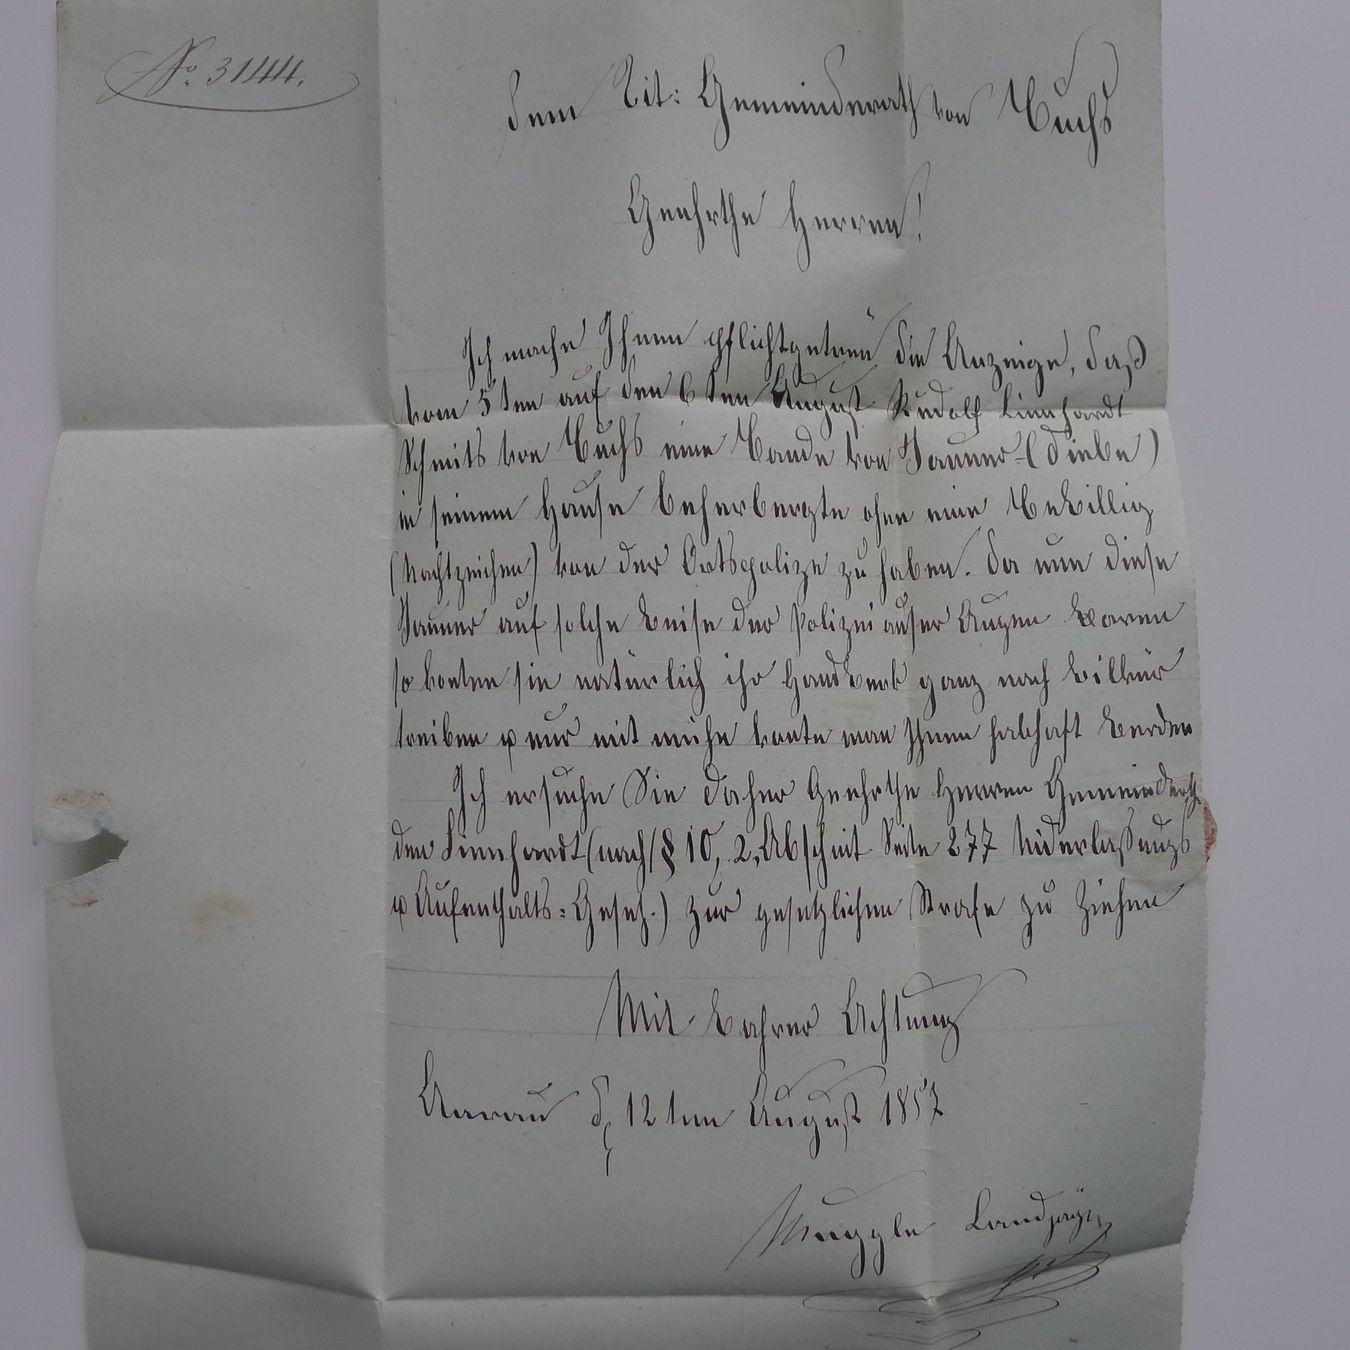 No. 3144.
Dem Tit: Gemeinderath von Buchs
Geehrthe Herren!
Ich mache Ihnen pflichtgetreü die Anzeige, daß
vom 5ten auf den 6ten August Rudolf Linnhardt
Schmits von Buchs eine Bande von Jauner (Diebe)
in seinem Hause beherbergte ohne eine Bewillig
(Nachtzeichen) von der Ortspolize zu haben. Da nun diese
Jauner auf solche Weise der Polizei außer Augen waren
so konten sie natürlich ihr Handwerk ganz nach Wilkür
treiben u nur mit mühe konte man Ihnen habhaft werden
Ich ersuche Sie daher Geehrthe Herren Gemeinderth
den Linnhardt (nach § 10, 2. Abschnit Seite 277 Niderlaßungs
u Aufenthalts=Gesetz.) zur gesetzlichen Strafe zu Ziehen
Mit wahrer Achtung
Aarau d. 12ten August 1857
Muggle Landjäger